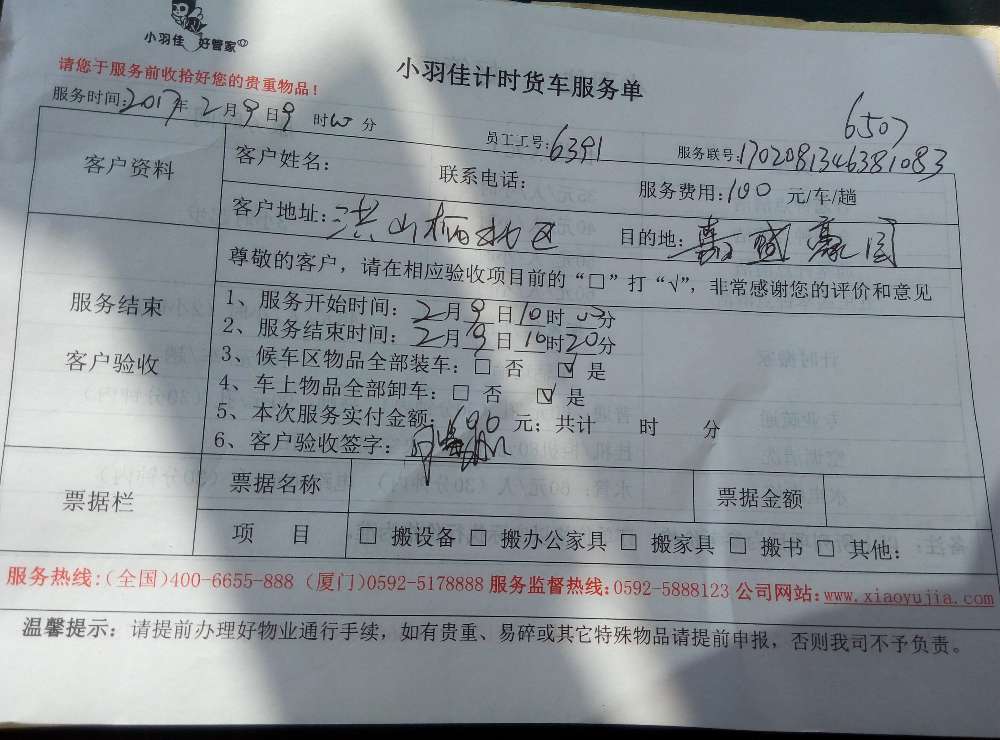 小羽佳 好管家
请您于服务前收拾好您的贵重物品！
小羽佳计时货车服务单
6507
服务时间:2017年2月9日9时00分 员工工号:6391 服务联号:1702081346381083
客户资料 客户姓名: 联系电话: 服务费用:100 元/车/趟
客户地址:洪山柄北区 目的地:嘉盛豪园
尊敬的客户，请在相应验收项目前的“□”打“√”，非常感谢您的评价和意见
服务结束 客户验收
1、服务开始时间: 2月9日10时03分
2、服务结束时间: 2月9日10时20分
3、候车区物品全部装车: □ 否 ☑ 是
4、车上物品全部卸车: □ 否 ☑ 是
5、本次服务实付金额: 100 元；共计 时 分
6、客户验收签字:
票据栏 票据名称 票据金额
项 目 □ 搬设备 □ 搬办公家具 □ 搬家具 □ 搬书 □ 其他:
服务热线:(全国)400-6655-888 (厦门)0592-5178888 服务监督热线:0592-5888123 公司网站:www.xiaoyujia.com
温馨提示: 请提前办理好物业通行手续，如有贵重、易碎或其它特殊物品请提前申报，否则我司不予负责。